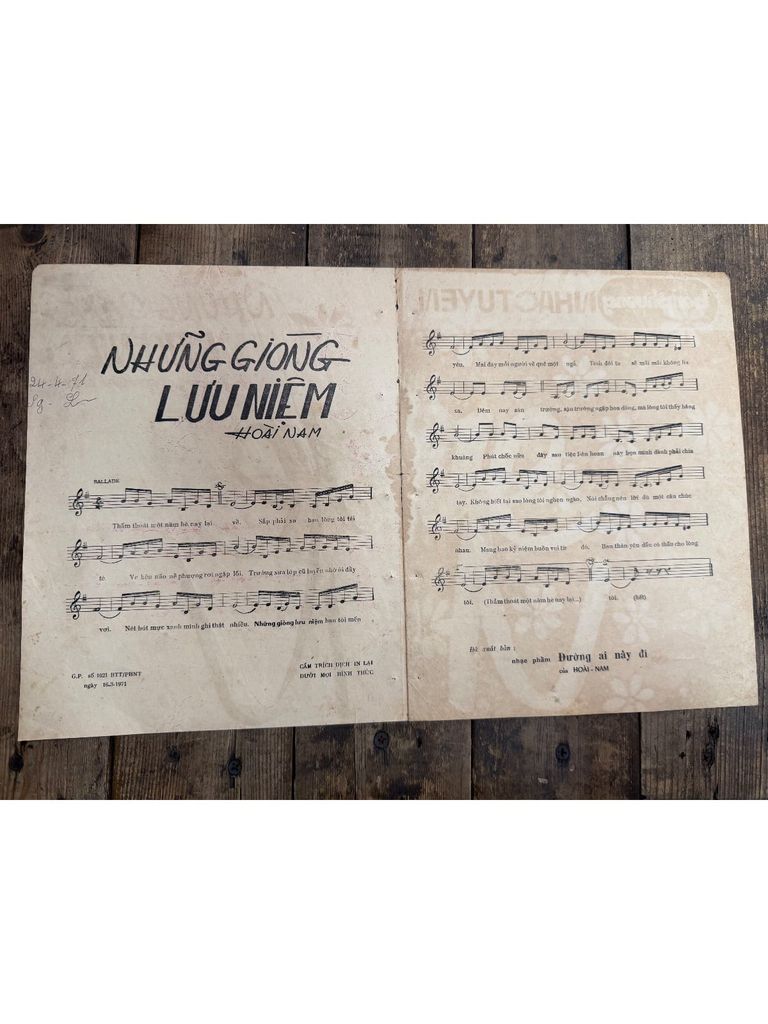 NHỮNG GIÒNG
LƯU NIỆM
HOÀI NAM
24-4-71
Sg -
BALLADE
Thấm thoát một năm hè nay lại về. Sắp phải xa bao lòng tôi tái
tê. Ve kêu não nề phượng rơi ngập lối. Trường xưa lớp cũ luyến nhớ ôi đầy
vơi. Nét bút mực xanh mình ghi thật nhiều. Những giòng lưu niệm ban tôi mến
G.P. số 1021 BTT/PBNT
ngày 16-3-1971
CẤM TRÍCH DỊCH IN LẠI
DƯỚI MỌI HÌNH THỨC
NHẠC TUYỂN
yêu. Mai đây mỗi người về quê một ngả. Tình đôi ta sẽ mãi mãi không lìa
xa. Đêm nay sân trường, sân trường ngập hoa đăng, mà lòng tôi thấy bâng
khuâng Phút chốc nữa đây sau tiệc liên hoan này bọn mình đành phải chia
tay. Không biết tại sao lòng tôi nghẹn ngào, Nói chẳng nên lời dù một câu chúc
nhau. Mang bao kỷ niệm buồn vui từ đó, Bạn thân yêu dấu có thấu cho lòng
tôi. (Thấm thoát một năm hè nay lại...) tôi. (hết)
Đã xuất bản :
nhạc phẩm Đường ai nấy đi
của HOÀI - NAM